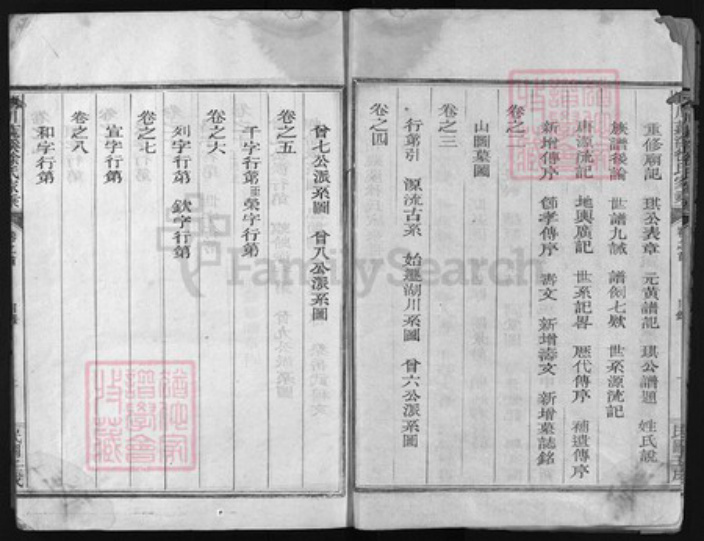 重修廟記 琪公表章 元黃譜記 琪公譜題 姓氏說
族譜後論 世譜九誡 譜例七款 世系源流記
唐源流記 地輿廣記 世系記畧 歷代傳序 補遺傳序
新增傳序 節孝傳序 壽文 新增壽文 新增墓誌銘
卷之二
山圖墓圖
卷之三
行第引 源流古系 始遷湖川系圖 曾六公派系圖
卷之四
曾七公派系圖 曾八公派系圖
卷之五
千字行第 榮字行第
卷之六
列字行第 欽字行第
卷之七
宜字行第
卷之八
和字行第
猶他家譜學會收藏
猶他家譜學會收藏
FamilySearch